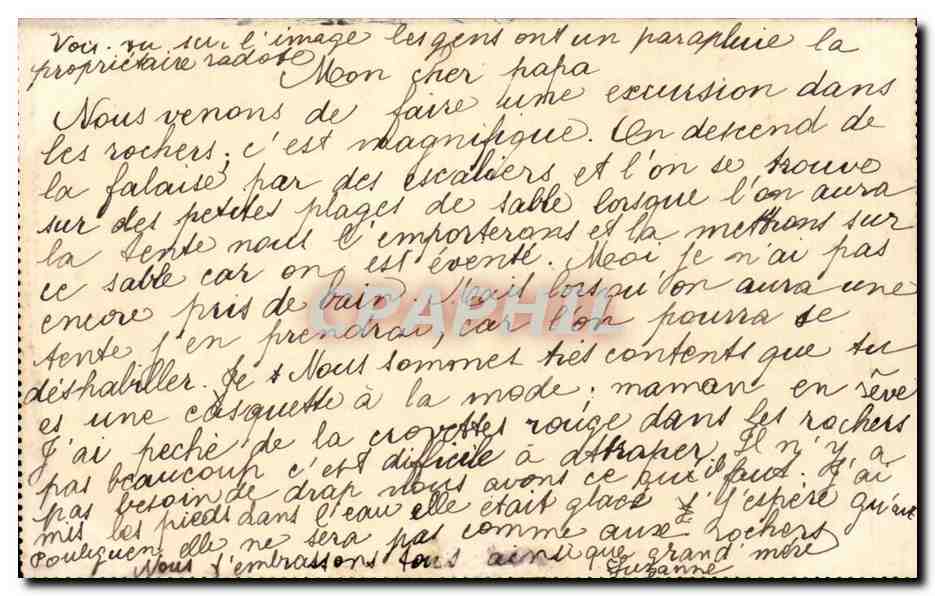 Vois-tu sur l'image les gens ont un parapluie la
propriétaire radote
Mon cher papa
Nous venons de faire une excursion dans
les rochers, c'est magnifique. On descend de
la falaise par des escaliers et l'on se trouve
sur des petites plages de sable lorsque l'on aura
la tente nous l'emporterons et la mettrons sur
ce sable car on est éventé. Moi je n'ai pas
encore pris de bain. Mais lorsqu'on aura une
tente j'en prendrai, car l'on pourra se
déshabiller. Je Nous sommes très contents que tu
es une casquette à la mode, maman en rêve
J'ai peché de la crovettes rouge dans les rochers
pas beaucoup c'est difficile à attraper. Il n'y a
pas besoin de drap nous avons ce qu'il faut. J'ai
mis les pieds dans l'eau elle était glacé j'espère qu'au
Pouliguen elle ne sera pas comme aux rochers
Nous t'embrassons tous ainsi que grand'mère
Suzanne
CPAPHIL